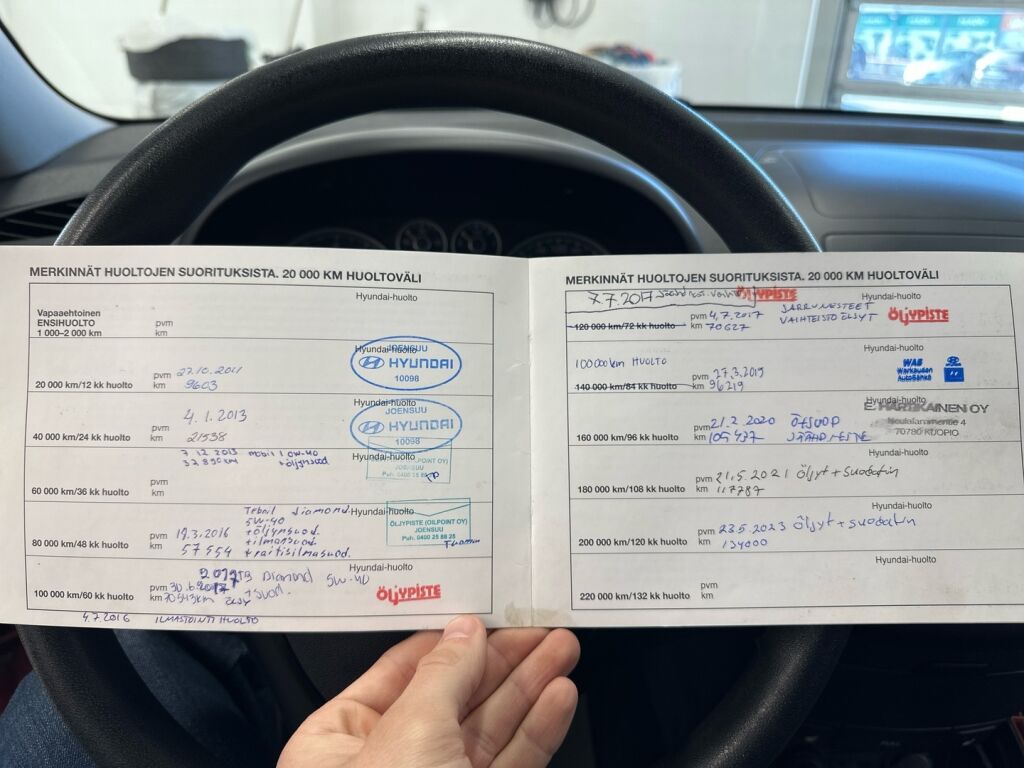 MERKINNÄT HUOLTOJEN SUORITUKSISTA. 20 000 KM HUOLTOVÄLI
Hyundai-huolto
Vapaaehtoinen
ENSIHUOLTO
1 000–2 000 km
pvm
km
Hyundai-huolto
20 000 km/12 kk huolto
pvm 27.10.2011
km 9603
JOENSUU
HYUNDAI
10098
Hyundai-huolto
40 000 km/24 kk huolto
pvm 4.1.2013
km 21538
JOENSUU
HYUNDAI
10098
Hyundai-huolto
7.12.2013 mobil 1 0W-40
32890KM +öljynsuod
60 000 km/36 kk huolto
pvm
km
JOENSUU
Hyundai-huolto
Teboil diamond
5W-40
+öljynsuod.
+ilmansuod.
+raitisilmasuod.
80 000 km/48 kk huolto
pvm 19.3.2016
km 57554
ÖLJYPISTE (OILPOINT OY)
JOENSUU
Puh. 0400 25 88 25
Hyundai-huolto
100 000 km/60 kk huolto
2017
pvm 30.6.2017
km 70543km
Diamond 5W-40
+suod.
ÖLJYPISTE
4.7.2016 ILMASTOINTIHUOLTO
MERKINNÄT HUOLTOJEN SUORITUKSISTA. 20 000 KM HUOLTOVÄLI
7.7.2017
ÖLJYPISTE
Hyundai-huolto
120 000 km/72 kk huolto
pvm 4.7.2017
km 70627
JARRUNESTEET
VAIHTEISTOÖLJYT
ÖLJYPISTE
Hyundai-huolto
100 000km HUOLTO
140 000 km/84 kk huolto
pvm 27.3.2019
km 96219
WAS
Warkauden
AutoSähkö
Hyundai-huolto
160 000 km/96 kk huolto
pvm 21.2.2020 Ö+SUOD
km 105437 JÄÄHD.NESTE
E. HARTIKAINEN OY
70780 KUOPIO
Hyundai-huolto
180 000 km/108 kk huolto
pvm 21.5.2021 Öljyt + Suodatin
km 117787
Hyundai-huolto
200 000 km/120 kk huolto
pvm 23.5.2023 Öljyt + suodatin
km 134000
Hyundai-huolto
220 000 km/132 kk huolto
pvm
km